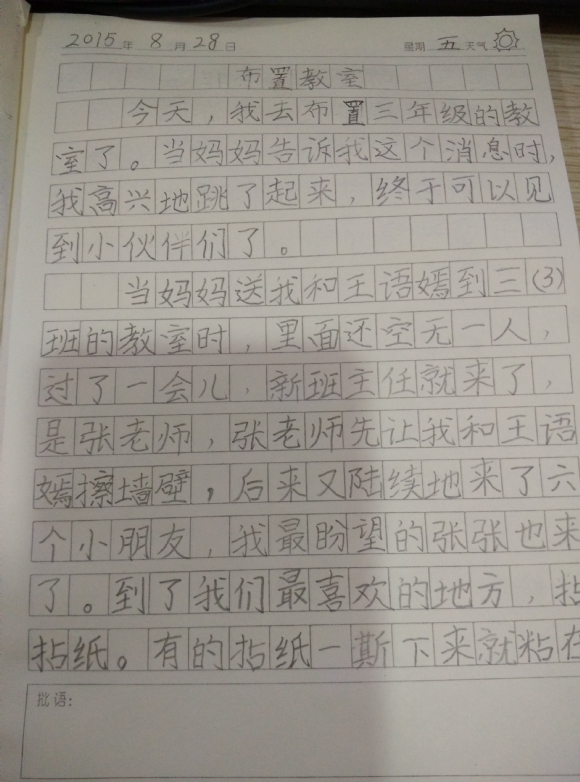 2015年8月28日 星期五天气
布置教室
今天，我去布置三年级的教
室了。当妈妈告诉我这个消息时，
我高兴地跳了起来，终于可以见
到小伙伴们了。
当妈妈送我和王语嫣到三(3)
班的教室时，里面还空无一人，
过了一会儿，新班主任就来了，
是张老师，张老师先让我和王语
嫣擦墙壁，后来又陆续地来了六
个小朋友，我最盼望的张张也来
了。到了我们最喜欢的地方，拈
拈纸。有的拈纸一斯下来就粘在
批语：